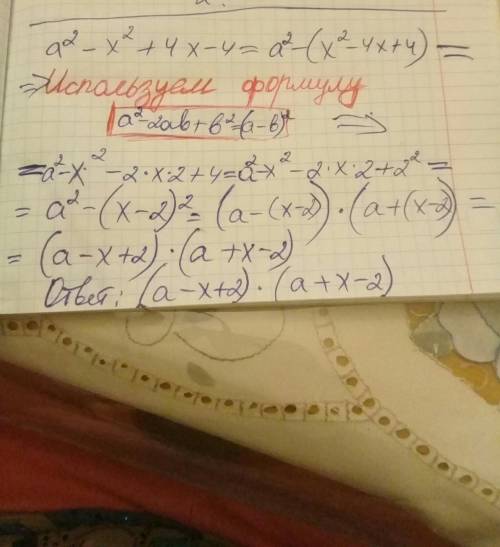 a² - x² + 4x - 4 = a² - (x² - 4x + 4) =
⇒ Используем формулу
a² - 2ab + b² = (a - b)² ⇒
= a² - x² - 2·x·2 + 4 = a² - x² - 2·x·2 + 2² =
= a² - (x - 2)² = (a - (x - 2)) · (a + (x - 2) =
= (a - x + 2) · (a + x - 2)
Ответ: (a - x + 2) · (a + x - 2)